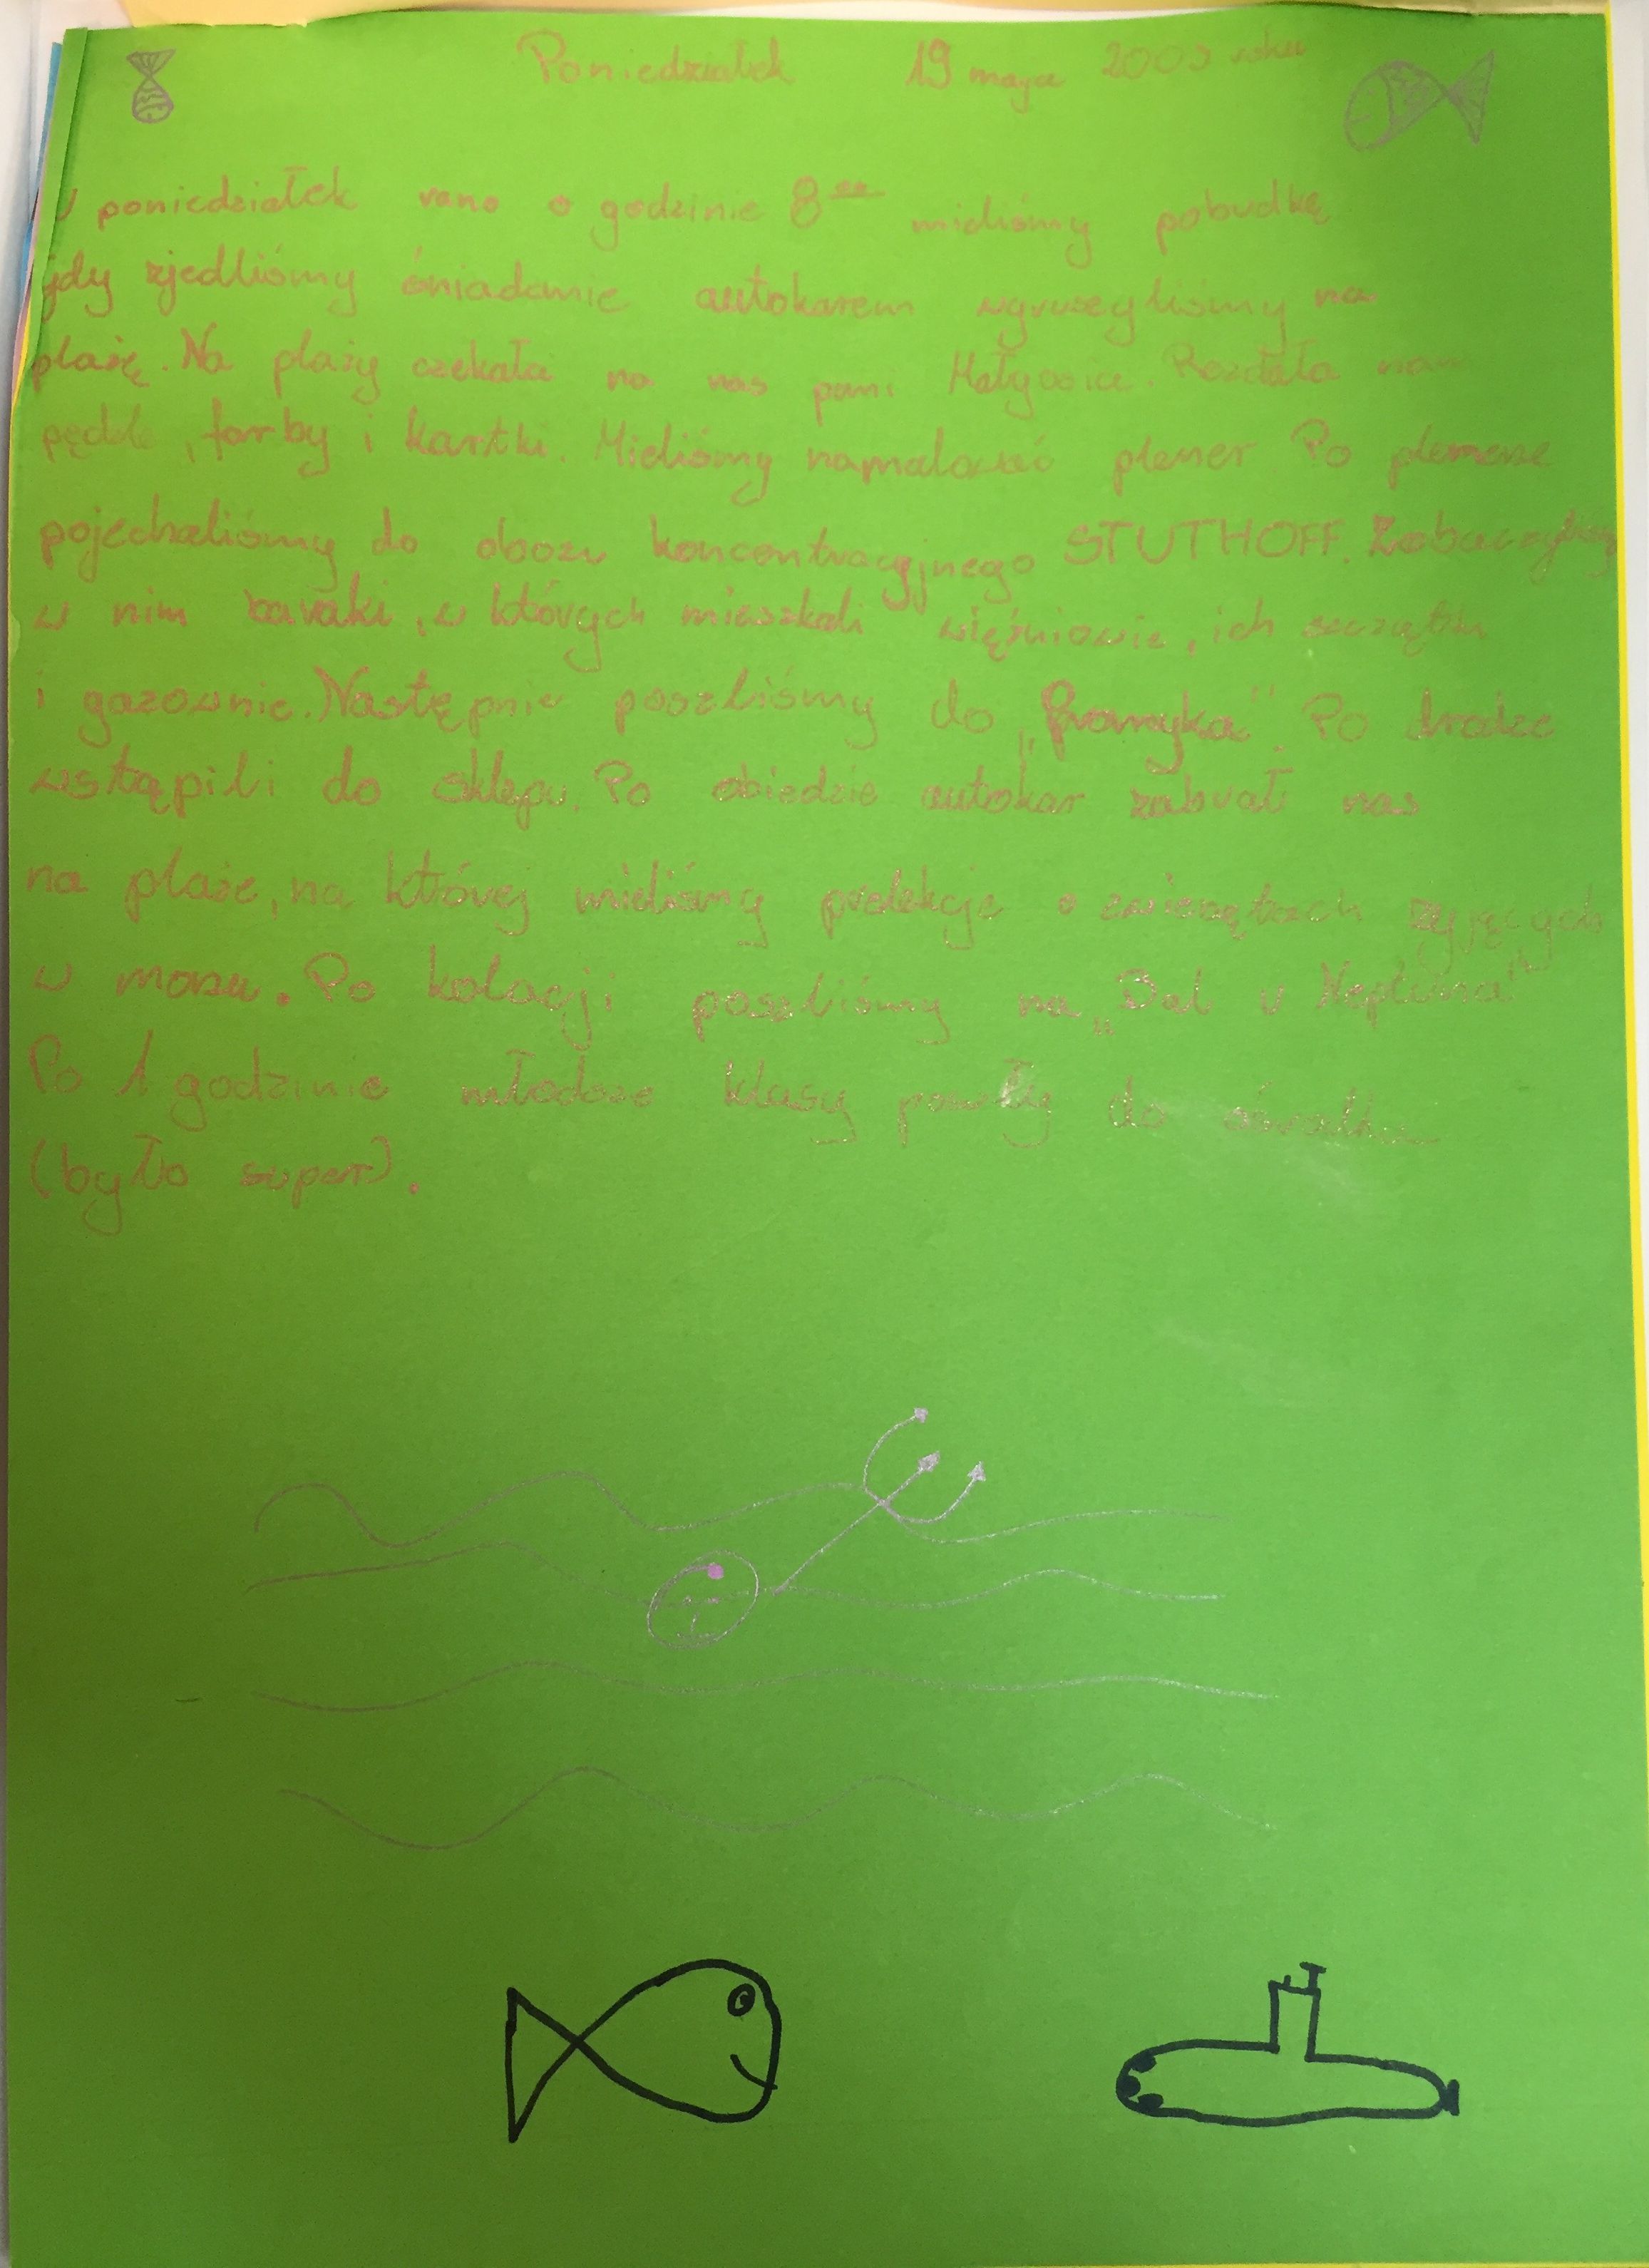 Poniedziałek 19 maja 2003 roku
W poniedziałek rano o godzinie 8⁰⁰ mieliśmy pobudkę
gdy zjedliśmy śniadanie autokarem wyruszyliśmy na
plażę. Na plaży czekała na nas pani Małgosia. Rozdała nam
pędzle, farby i kartki. Mieliśmy namalować plener. Po plenerze
pojechaliśmy do obozu koncentracyjnego STUTHOFF. Zobaczyliśmy
w nim baraki, w których mieszkali więźniowie, ich szczątki
i gazownie. Następnie poszliśmy do „Promyka". Po drodze
wstąpili do sklepu. Po obiedzie autokar zabrał nas
na plaże, na której mieliśmy prelekcje o zwierzętach żyjących
w morzu. Po kolacji poszliśmy na „Bal u Neptuna"
Po 1 godzinie młodsze klasy poszły do ośrodka
(było super).